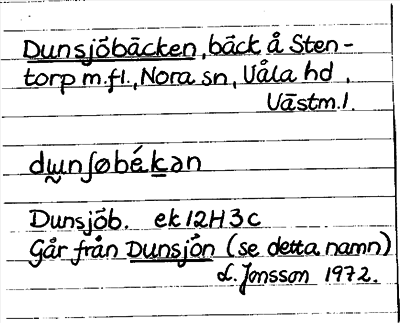 Dunsjöbäcken, bäck å Sten-
torp m.fl., Nora sn, Våla hd,
Västm.l.
dw̰nʃøbék̲ən
Dunsjöb. ek 12H3c
Går från Dunsjön (se detta namn)
L. Jonsson 1972.